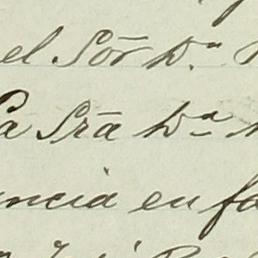 el Sōr D.ª
La Srā Dª
ncia en fa